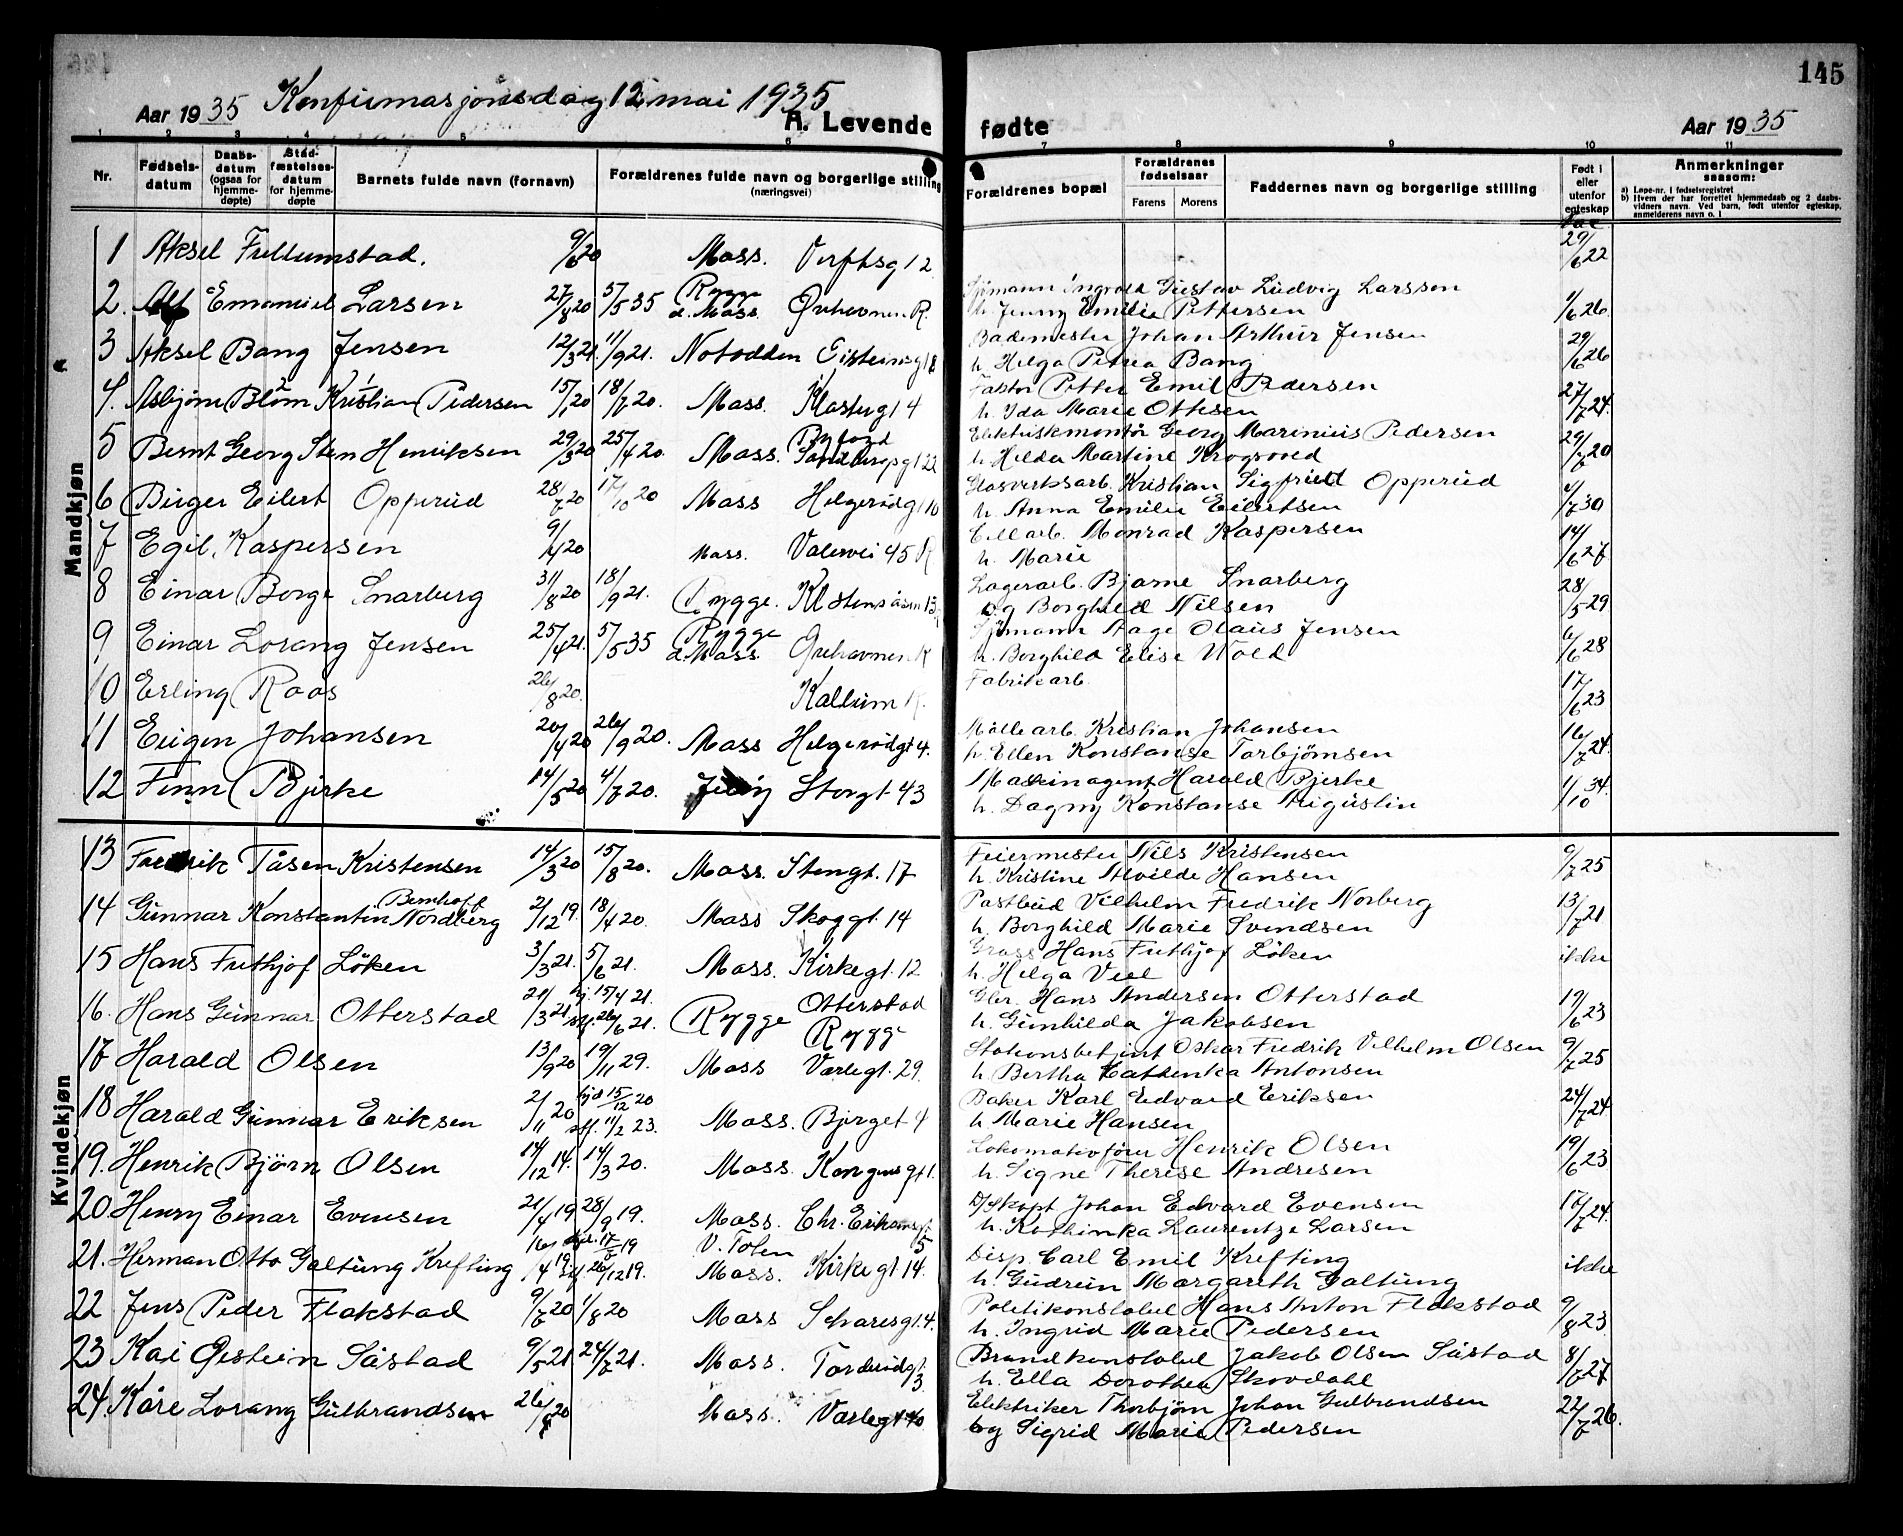 145
Aar 1935 Konfirmasjonsdag 12 mai 1935
A. Levende fødte
Aar 1935
1 2 3 4 5 6 7 8 9 10 11
Nr.
Fødsels-datum
Daabs-datum (ogsaa for hjemme-døpte)
Stad-fæstelses-datum for hjemme-døpte
Barnets fulde navn (fornavn)
Forældrenes fulde navn og borgerlige stilling (næringsvei)
Forældrenes bopæl
Forældrenes fødselsaar
Farens Morens
Faddernes navn og borgerlige stilling
Født i eller utenfor egteskap
Anmerkninger saasom:
a) Løpe-nr. i fødselsregistret
b) Hvem der har forrettet hjemmedaab og 2 daabs-vidners navn. Ved barn, født utenfor egteskap, anmelderens navn o. l
Mandkjøn
1 Aksel Fullumstad. 9/6 20 Moss. Verftsg 12 29/6 22
2. Alf Emanuel Larsen 27/8 20 5/5 35 Rygge d. Moss. Örehavnen R. Sjömann Ingvald Gustav Ludvig Larsson
h. Jenny Emilie Pettersen 1/6 26
3 Aksel Bang Jensen 12/3 21. 11/9 21. Notodden Eisteinsg 18 Bademester Johan Arthur Jensen
h. Helga Petrea Bang 29/6 26
4. Asbjörn Blom Kristian Pedersen 15/1 20 18/7 20. Moss. Klosterg 4 Faktor Petter Emil Pedersen
h. Ida Marie Ottesen 27/7 24.
5 Bernt Georg Sten Henriksen 29/3 20 25/4 20. Moss. Byfogd Sandbergsg 22 Elektriskmontör Georg Marinius Pedersen
h. Helda Martine Krogsvold 29/7 20
6 Birger Eilert Opperud 28/7 20 17/10 20 Moss Helgerödg 10 Glasverksarb. Kristian Sigfried Opperud
h. Anna Emilie Eilertsen 4/7 30
7 Egil Kaspersen 9/4 20 Moss. Valervei 45 R Cellarb. Monrad Kaspersen
h. Marie 14/6 27
8 Einar Borge Snarberg 31/8 20 18/9 21. Rygge. Lagerarb. Bjarne Snarberg
og Borghild Nilsen 28/5 29
9 Einar Lorang Jensen 25/4 21. 5/5 35 Rygge d. Moss. Örehavnen R Sjömann Aage Olaus Jensen
h. Borghild Elise Wold 6/6 28
10 Erling Roos 26/8 20. Kallum R. Fabrikarb. 17/6 23
11 Eugen Johansen 20/4 20 26/9 20. Moss Helgerödgt 4. Möllearb. Kristian Johansen
h. Ellen Konstanse Torbjörnsen 16/7 24.
12 Finn Bjerke 14/5 20 4/7 20. Jelöy Storgt 43 Maskinagent Harald Bjerke
h. Dagny Konstanse Augustin 1/10 34.
Kvindekjøn
13 Fredrik Tåsen Kristensen 14/3 20 15/8 20. Moss. Stengt. 17 Feiermester Nils Kristensen
h. Kristine Alvilde Hansen 9/7 25
14 Gunnar Konstantin Bernhoft Nordberg 2/12 19. 18/4 20. Moss Skoggt. 14 Postbud Vilhelm Fredrik Norberg
h. Borghild Marie Svendsen 13/7 21
15 Hans Frithjof Löken 3/3 21. 5/6 21. Moss. Kirkegt. 12 Gross Hans Frithjof Löken
h. Helga Veel ikke
16. Hans Gunnar Otterstad 21/3 21 hj. 15/4 21. stf. 26/6 21. Rygge Otterstad Rygge Gbr. Hans Andersen Otterstad
h. Gunhilda Jakobsen 19/6 23
17 Harald Olsen 13/9 20 19/11 29. Moss Varlegt. 29 Stationsbetjent Oskar Fredrik Vilhelm Olsen
h. Bertha Cathinka Antonsen 9/7 25
18 Harald Gunnar Eriksen 2/11 20 hjd 15/12 20 stf. 11/2 23. Moss. Bjerget 4 Baker Karl Edvard Eriksen
h Marie Hansen 24/7 24
19. Henrik Björn Olsen 14/12 14. 14/3 20. Moss. Kongensgt 1. Lokomotivförer Henrik Olsen
h. Signe Therese Andresen 19/6 23
20. Henry Einar Evensen 21/4 19 28/9 19. Moss. Chr. Eriksensgt 5 D/Skapt Johan Edvard Evensen
h. Kathinka Laurentze Larsen 17/7 24.
21. Herman Otto Galtung Krefting 16/4 19 hj. 17/5 19 stf. 26/12 19. V. Toten Moss. Kirkegt 14. Disp. Carl Emil Krefting
h. Gudrun Margareth Galtung ikke
22 Jens Peder Flakstad 9/7 20 1/8 20 Moss Schavesgt. 4. Politikonstabel Hans Anton Flakstad
h. Ingrid Marie Pedersen 9/8 23
23 Kai Öystein Såstad 9/5 21 24/7 21. Moss. Torderödgt. 3 Brandkonstabel Jakob Olsen Såstad
h. Ella Dorothea Skovdahl 8/7 27
24. Kåre Lorang Gulbrandsen 26/8 20 Moss. Varlegt 40 Elektriker Thorbjörn Johan Gulbrandsen
og Sigrid Marie Pedersen 22/7 26.